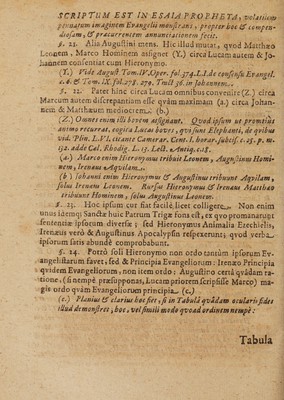 SCRIPTUM EST IN ESAIA PROPHETA, volatilium
pennatum imaginem Evangelii monstrans, propter hoc & compen-
diosam, & præcurrentem annunciationem fecit.
§. 21. Alia Augustini mens. Hic illud mutat, quod Matthæo
Leonem, Marco Hominem assignet (Y.) circa Lucam autem & Jo-
hannem consentiat cum Hieronymo.
(Y.) Vide August Tom. IV. Oper. fol. 374. L. I. de consensu Evangel.
c. 6. & Tom. IX. fol. 278. 279. Tract 36. in Johannem.
§. 22. Patet hinc circa Lucam omnibus convenire (Z.) circa
Marcum autem discrepantiam esse quàm maximam (a.) circa Johan-
nem & Matthæum mediocrem. (b.)
(Z.) Omnes enim illi bovem assignant. Quod ipsum ut promtius
animo recurrat, cogita Lucas boves, qui sunt Elephanti, de quibus
vid. Plin. L. VI. citante Camerar. Cent. I. horar. subcis. c. 25. p. m.
132. adde Cæl. Rhodig. L. 13. Lect. Antiq. c. 18.
(a.) Marco enim Hieronymus tribuit Leonem, Augustinus Homi-
nem, Irenæus Aquilam.
(b) Johanni enim Hieronymus & Augustinus tribuunt Aquilam,
solus Irenæus Leonem. Rursus Hieronymus & Irenæus Matthæo
tribuunt Hominem, solus Augustinus Leonem.
§. 23. Hoc ipsum cur fiat facilè licet colligere. Non enim
unus idemq; Sanctæ huic Patrum Trigæ fons est, ex quo promanarunt
sententiæ ipsorum diversæ; sed Hieronymus Animalia Ezechielis,
Irenæus verò & Augustinus Apocalypsin respexerunt; quod verba
ipsorum satis abundè comprobabunt.
§. 24. Porrò soli Hieronymo non ordo tantùm ipsorum Ev-
angelistarum favet, sed & Principia Evangeliorum: Irenæo Principia
quidem Evangeliorum, non item ordo: Augustino certâ quâdam ra-
tione. (si nempè præsupponas, Lucam priorem scripsisse Marco) ma-
gis ordo quàm Evangeliorum principia. (c.)
(c.) Planius & clarius hoc fiet, si in Tabulâ quâdam oculari fides
illud demonstret, hoc, vel simili modo quoad ordinem nempè:
Tabula